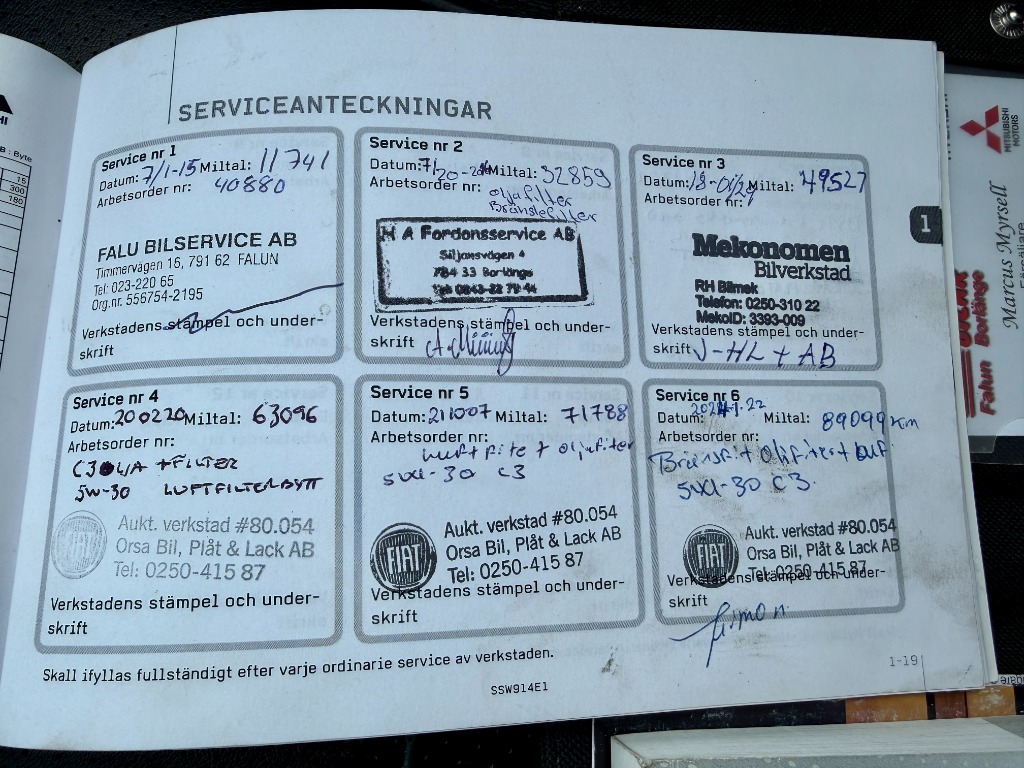 SERVICEANTECKNINGAR
Service nr 1
Datum: 7/1-15 Miltal: 11741
Arbetsorder nr: 40880
FALU BILSERVICE AB
Timmervägen 16, 791 62 FALUN
Tel: 023-220 65
Org.nr. 556754-2195
Verkstadens stämpel och under-
skrift
Service nr 2
Datum: 7/ Miltal: 32859
Arbetsorder nr:
oljefilter
Bränslefilter
M A Fordonsservice AB
Siljansvägen 4
784 33 Borlänge
Verkstadens stämpel och under-
skrift
Service nr 3
Datum: Miltal: 49527
Arbetsorder nr:
Mekonomen
Bilverkstad
RH Bilmek
Telefon: 0250-310 22
MekoID: 3393-009
Verkstadens stämpel och under-
skrift
Service nr 4
Datum: 200220 Miltal: 63096
Arbetsorder nr:
C3 OLJA + FILTER
5W-30 LUFTFILTERBYTT
Aukt. verkstad #80.054
Orsa Bil, Plåt & Lack AB
Tel: 0250-415 87
Verkstadens stämpel och under-
skrift
Service nr 5
Datum: 211007 Miltal: 71788
Arbetsorder nr:
5W-30 C3
FIAT
Aukt. verkstad #80.054
Orsa Bil, Plåt & Lack AB
Tel: 0250-415 87
Verkstadens stämpel och under-
skrift
Service nr 6
Datum: Miltal: 89099 km
Arbetsorder nr:
5W-30 C3.
FIAT
Aukt. verkstad #80.054
Orsa Bil, Plåt & Lack AB
Tel: 0250-415 87
Verkstadens stämpel och under-
skrift
Skall ifyllas fullständigt efter varje ordinarie service av verkstaden.
SSW914E1
1-19
1
MITSUBISHI
MOTORS
Marcus Myrsell
Falun Borlänge
: Byte
15
300
180